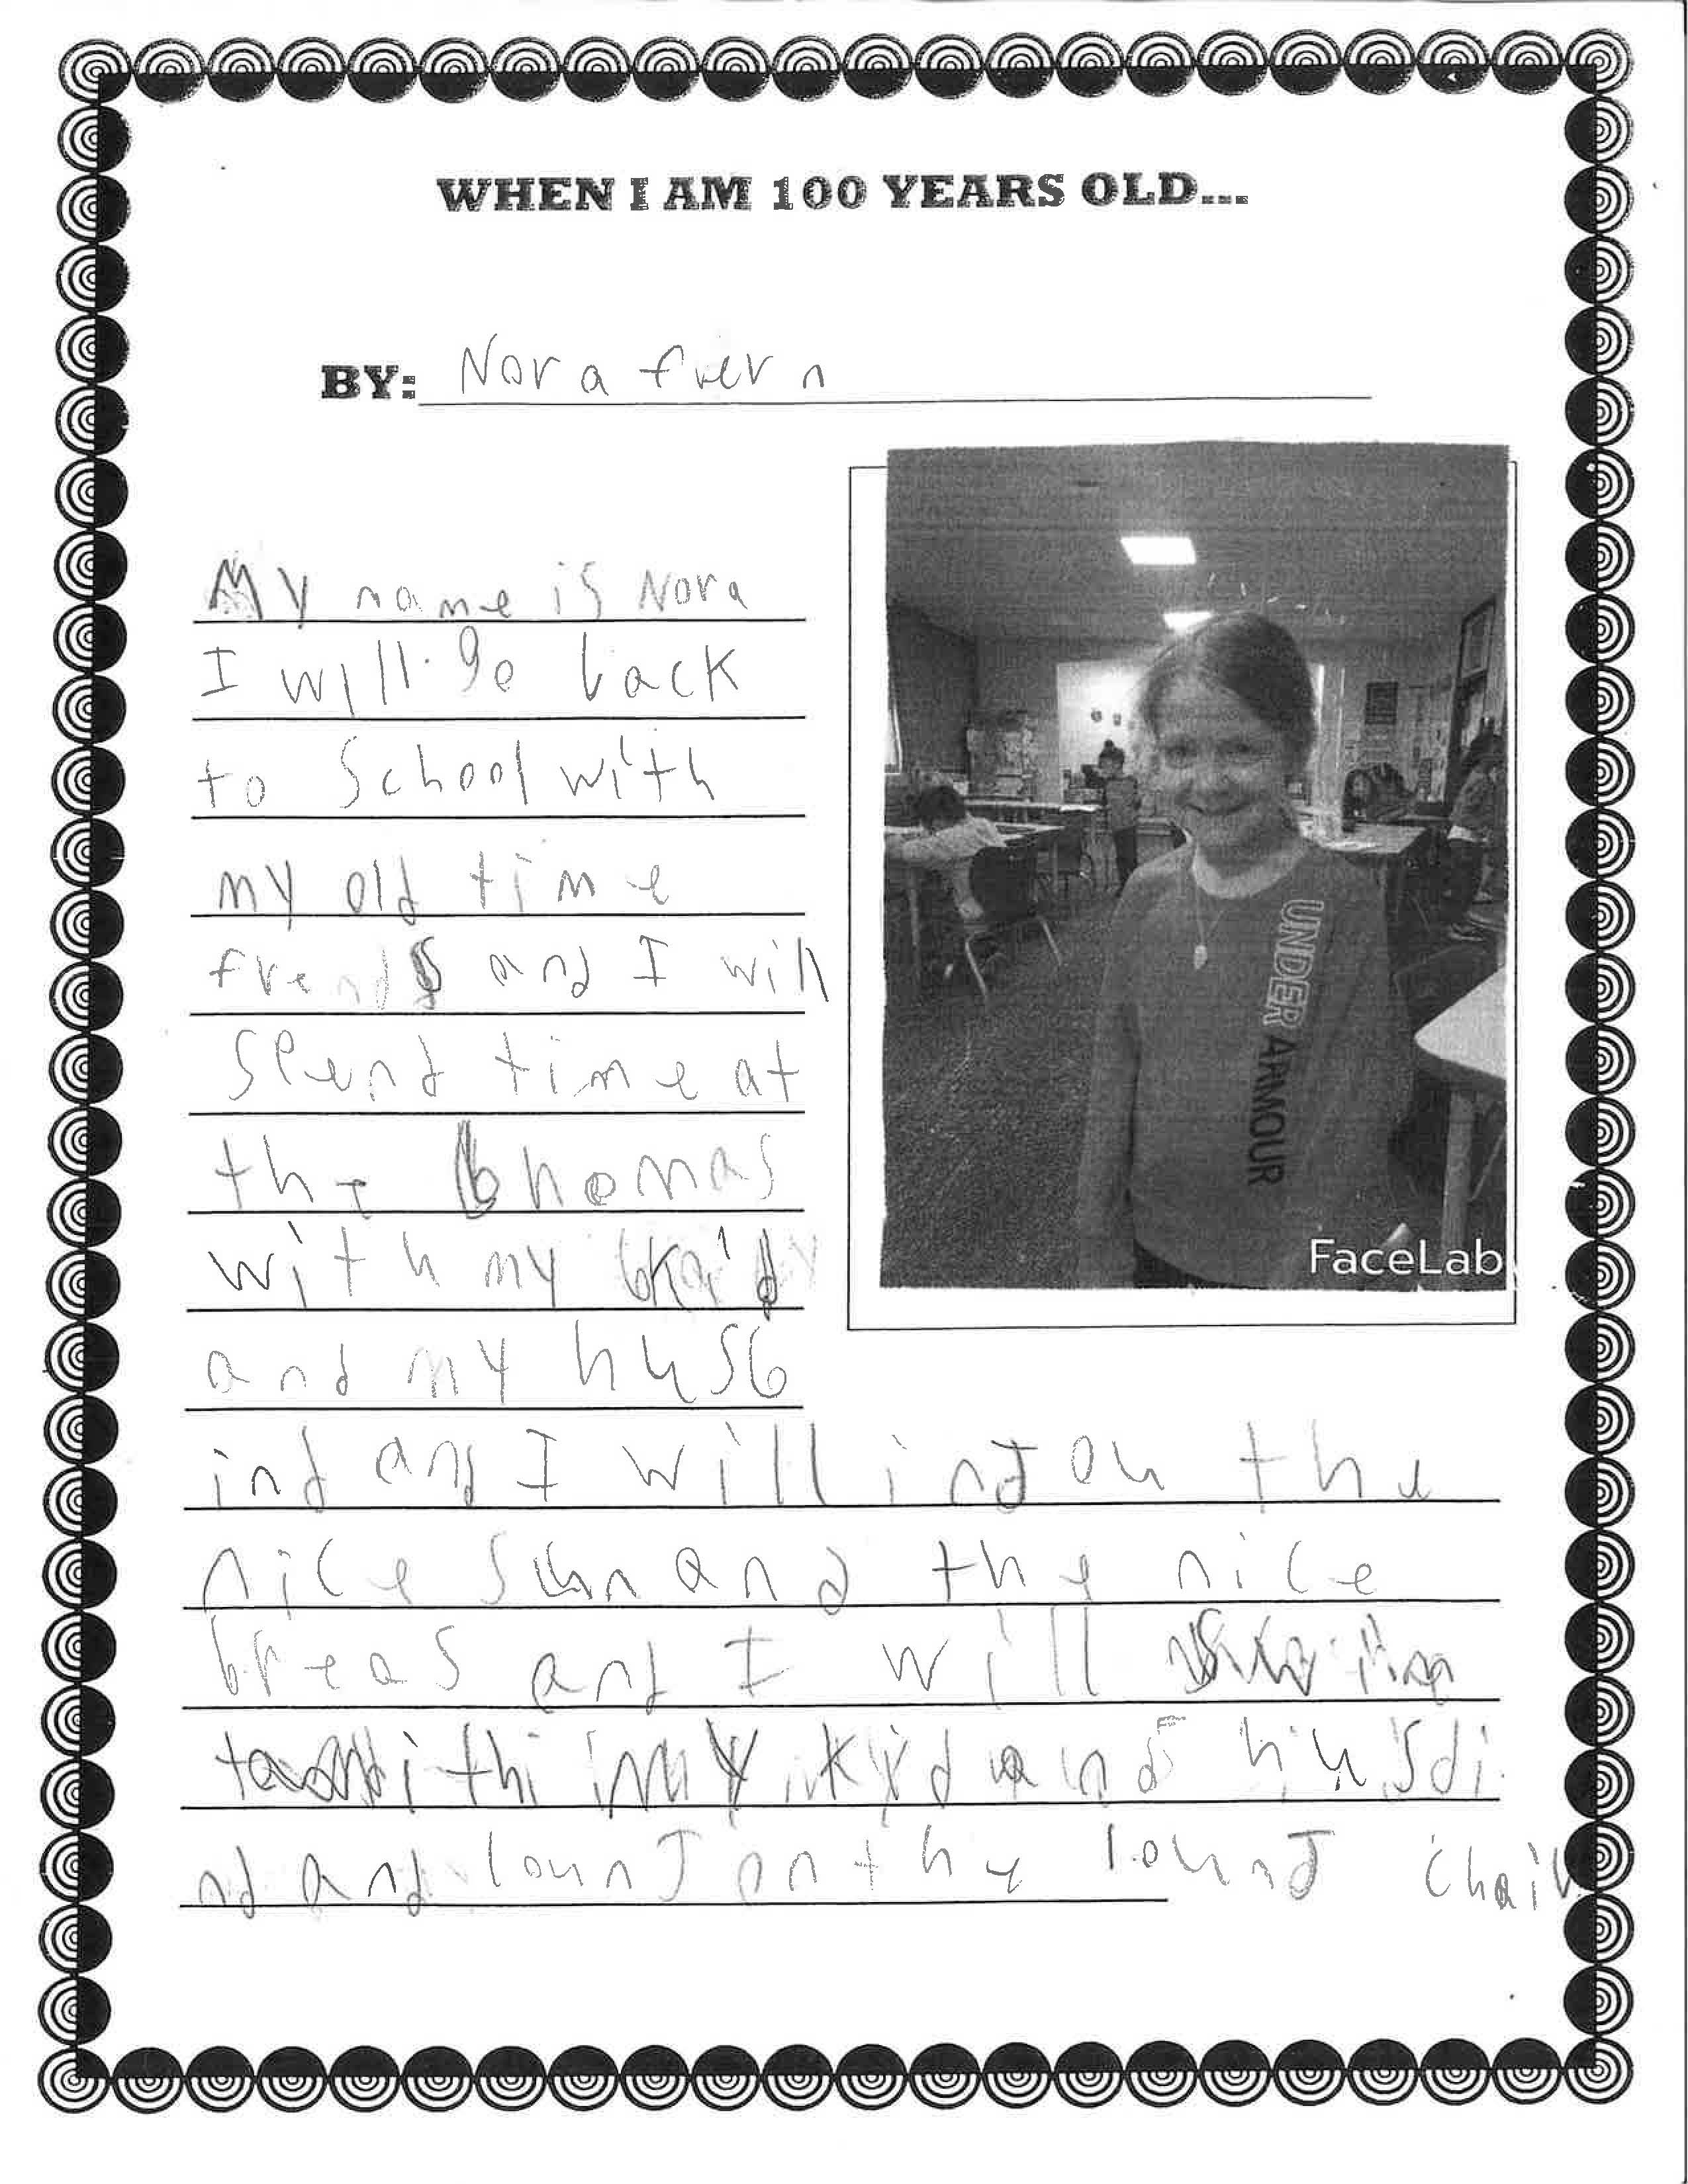 WHEN I AM 100 YEARS OLD...
BY: Nora
My name is Nora
I will go back
to School with
my old time
frends and I will
Spend time at
the bhomas
with my kid
and my husb
ind and I will injou the
nice Sun and the nice
breas and I will
my kid and husbi
nd and lounJ on the lounJ chair
UNDER ARMOUR
FaceLab